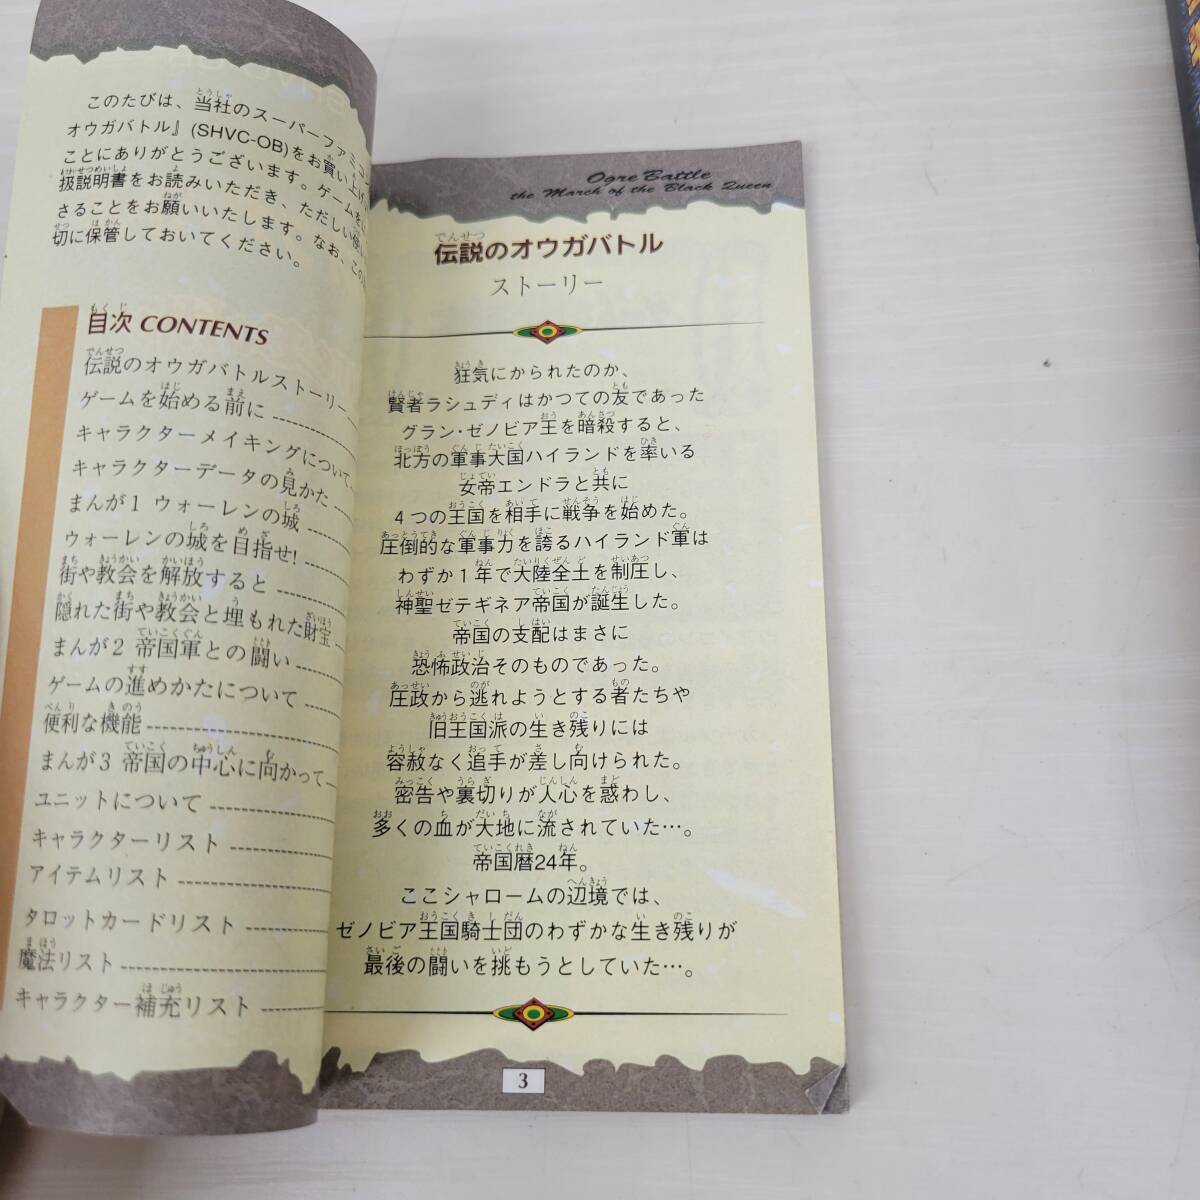 このたびは、当社のスーパーファミコン
オウガバトル』(SHVC-OB)をお買い上げい
ことにありがとうございます。ゲームを
扱説明書をお読みいただき、ただしい使
さることをお願いいたします。なお、この
切に保管しておいてください。
目次 CONTENTS
伝説のオウガバトルストーリー
ゲームを始める前に
キャラクターメイキングについて
キャラクターデータの見かた
まんが1 ウォーレンの城
ウォーレンの城を目指せ!
街や教会を解放すると
隠れた街や教会と埋もれた財宝
まんが2 帝国軍との闘い
ゲームの進めかたについて
便利な機能
まんが3 帝国の中心に向かって
ユニットについて
キャラクターリスト
アイテムリスト
タロットカードリスト
魔法リスト
キャラクター補充リスト
Ogre Battle
the March of the Black Queen
伝説のオウガバトル
ストーリー
狂気にかられたのか、
賢者ラシュディはかつての友であった
グラン・ゼノビア王を暗殺すると、
北方の軍事大国ハイランドを率いる
女帝エンドラと共に
4つの王国を相手に戦争を始めた。
圧倒的な軍事力を誇るハイランド軍は
わずか1年で大陸全土を制圧し、
神聖ゼテギネア帝国が誕生した。
帝国の支配はまさに
恐怖政治そのものであった。
圧政から逃れようとする者たちや
旧王国派の生き残りには
容赦なく追手が差し向けられた。
密告や裏切りが人心を惑わし、
多くの血が大地に流されていた…。
帝国暦24年。
ここシャロームの辺境では、
ゼノビア王国騎士団のわずかな生き残りが
最後の闘いを挑もうとしていた…。
3